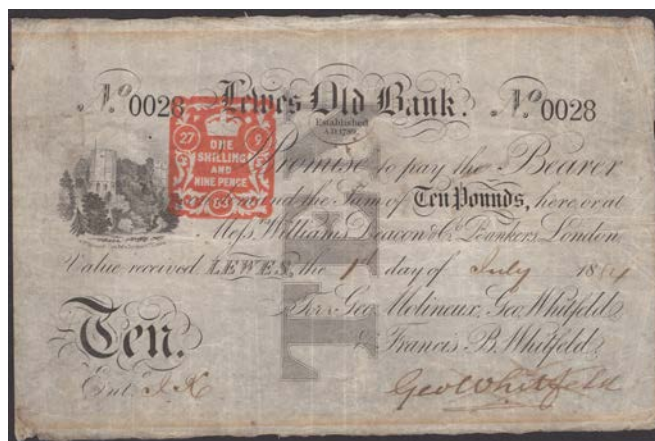 No 0028 Lewes Old Bank. No 0028
Established
A.D. 1789.
27 9
ONE
SHILLING
AND
NINE PENCE
Promise to pay the Bearer
on demand the Sum of Ten Pounds, here or at
Messrs Williams Deacon & Co Bankers London
Value received LEWES, the 1st day of July 18
For Geo. Molineux, Geo. Whitfeld,
& Francis B. Whitfeld,
Ten.
TEN
Ent.
Geo Whitfeld